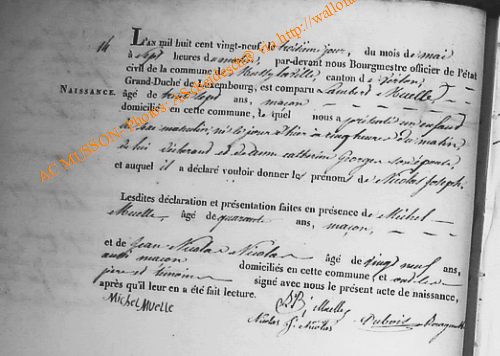 14
Naissance.
L'an mil huit cent vingt-neuf, le treizième jour, du mois de mai
à sept heures du matin, par-devant nous Bourgmestre officier de l'état
civil de la commune de Mussy la ville canton de Virton,
Grand-Duché de Luxembourg, est comparu Lambert Muelle
âgé de trente sept ans, maçon
domicilié en cette commune, lequel nous a présenté un enfant
de sexe masculin, né le jour d'hier à cinq heures du matin,
de lui déclarant et de dame catherine Georges son épouse,
et auquel il a déclaré vouloir donner les prénoms de Nicolas Joseph.
Lesdites déclaration et présentation faites en présence de Michel
Muelle, âgé de quarante ans, maçon,
et de Jean Nicolas Nicolas âgé de vingt neuf ans,
aussi maçon domiciliés en cette commune et ont les
père et témoins signé avec nous le présent acte de naissance,
après qu'il leur en a été fait lecture.
Michel Muelle
Muelle
Nicolas Nicolas
Dubois Bourgmestre
AC MUSSON- Photos
http://wallo